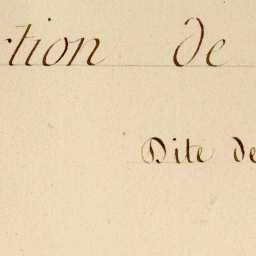 rtion de
Dite de